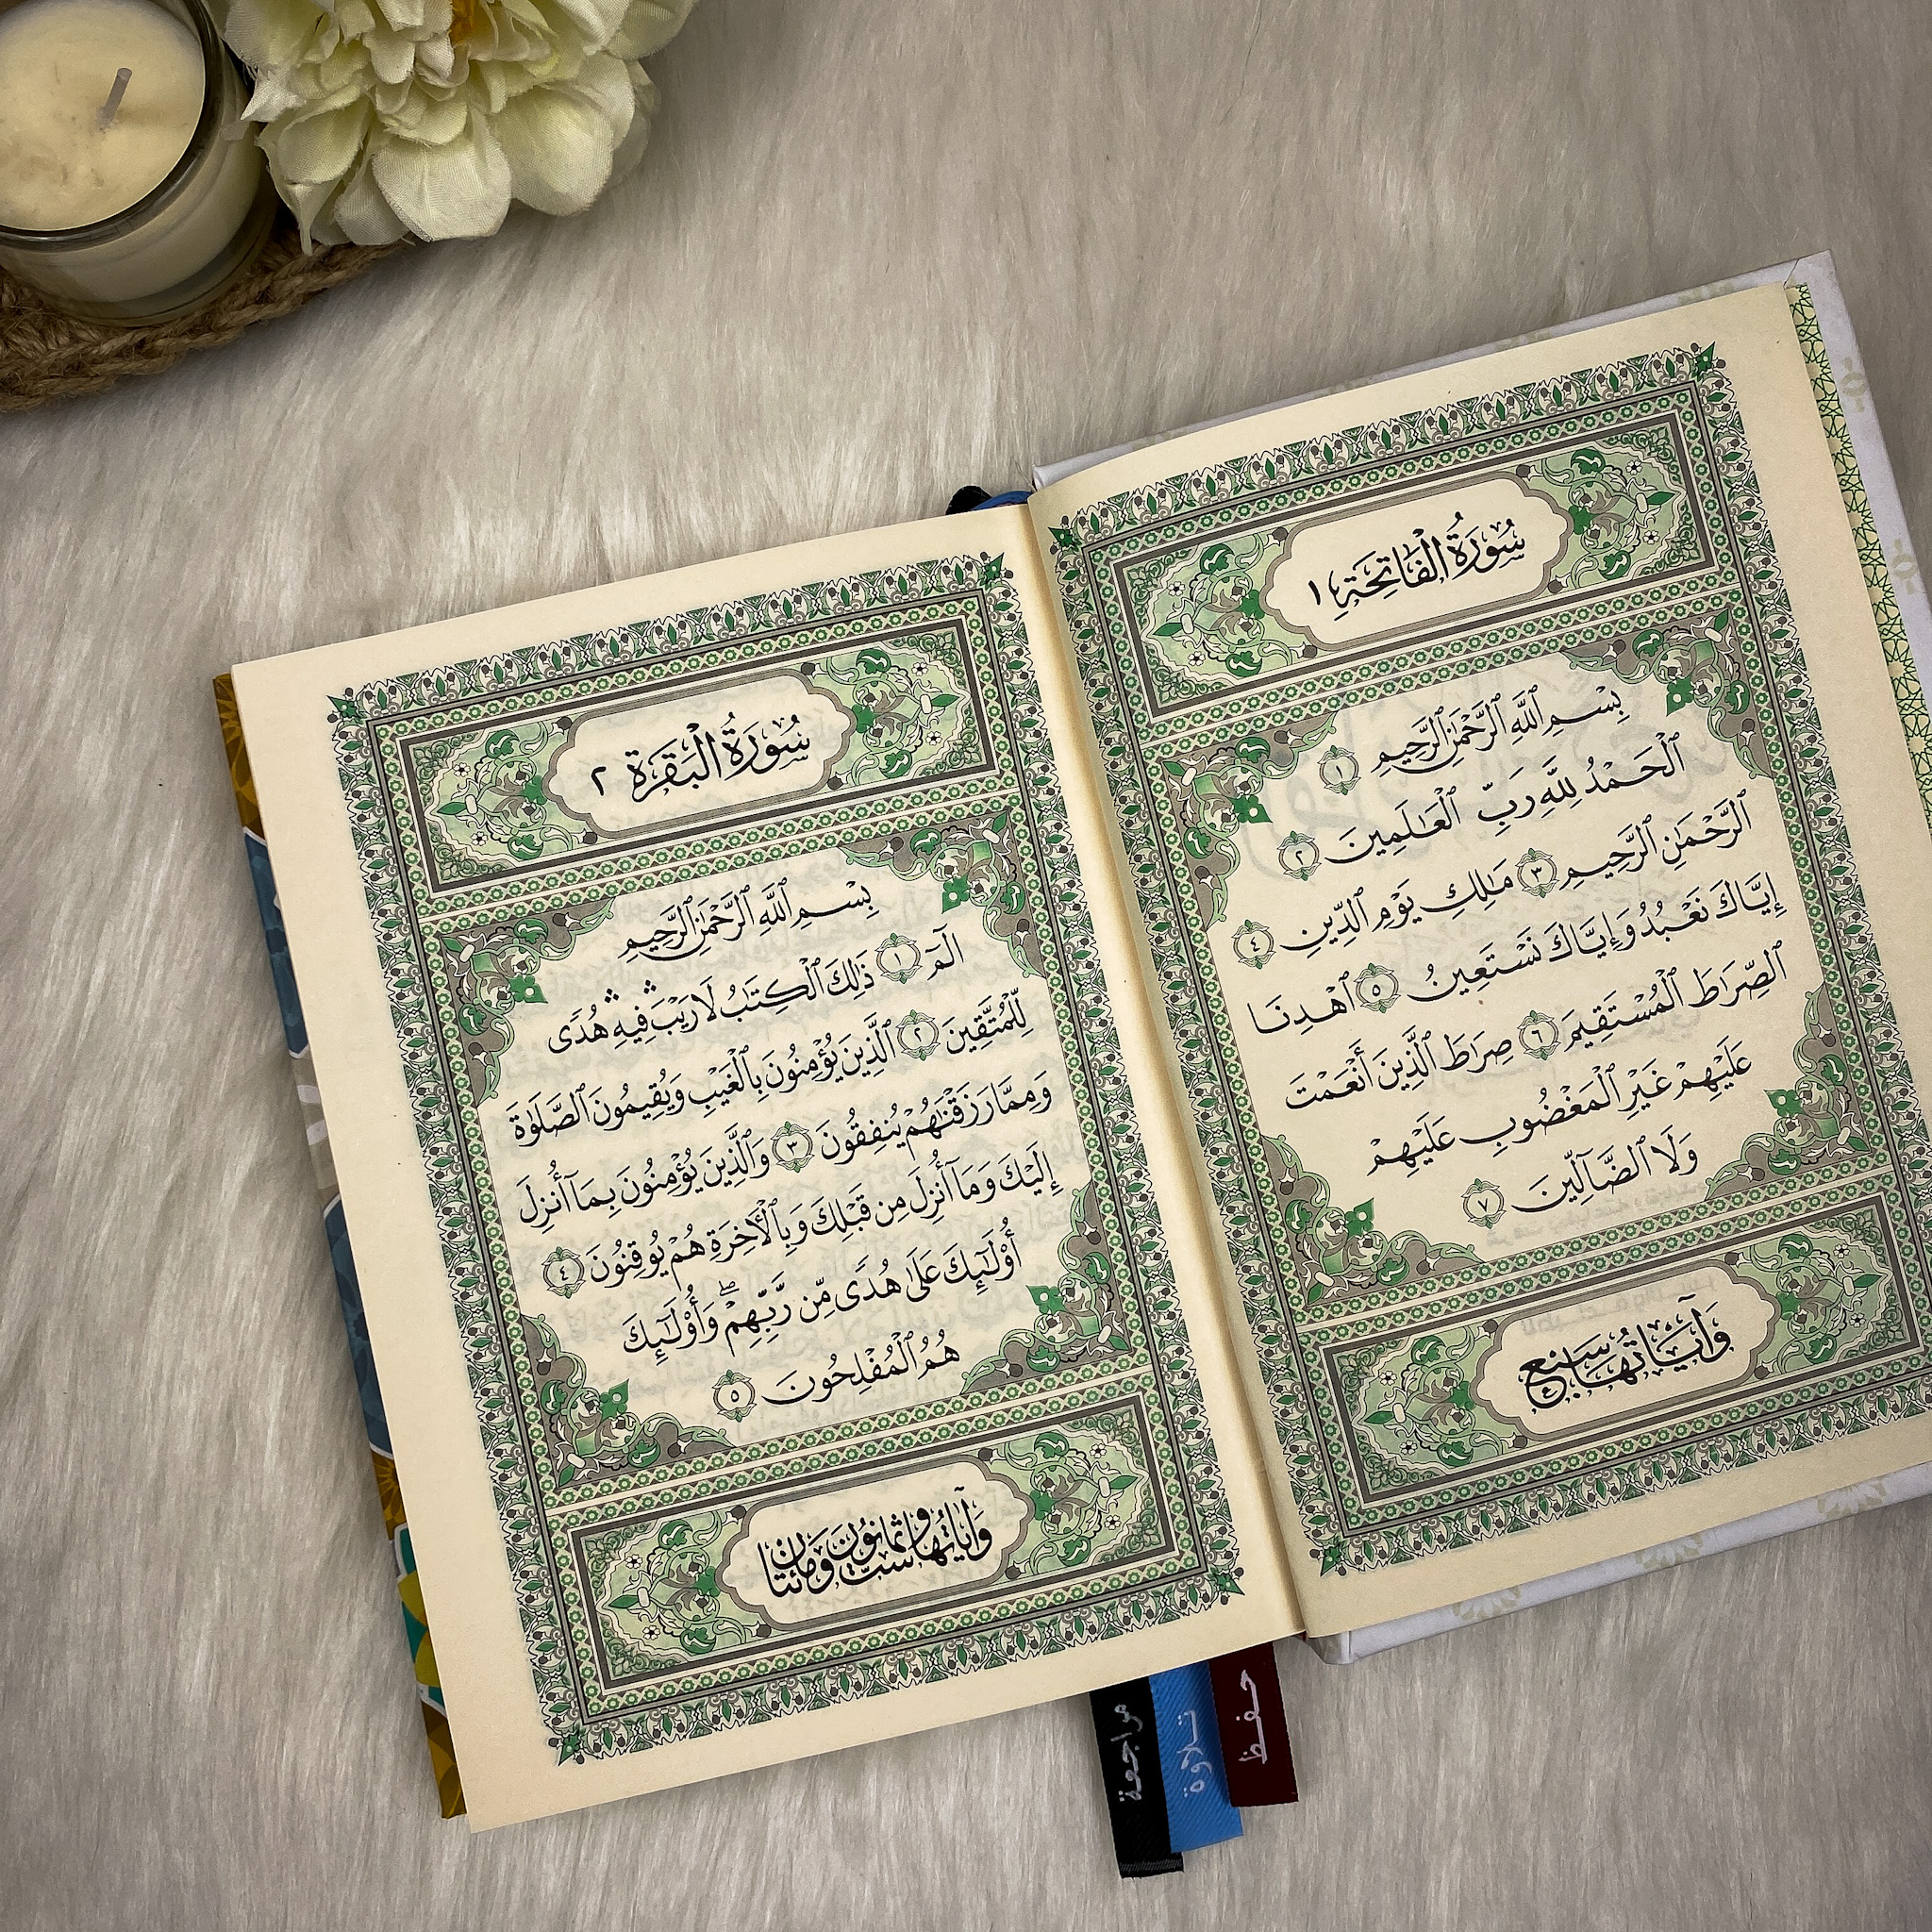 سُورَةُ الْفَاتِحَةِ ١
بِسْمِ ٱللَّهِ ٱلرَّحْمَٰنِ ٱلرَّحِيمِ ١
ٱلْحَمْدُ لِلَّهِ رَبِّ ٱلْعَٰلَمِينَ ٢
ٱلرَّحْمَٰنِ ٱلرَّحِيمِ ٣ مَٰلِكِ يَوْمِ ٱلدِّينِ ٤
إِيَّاكَ نَعْبُدُ وَإِيَّاكَ نَسْتَعِينُ ٥ ٱهْدِنَا
ٱلصِّرَٰطَ ٱلْمُسْتَقِيمَ ٦ صِرَٰطَ ٱلَّذِينَ أَنْعَمْتَ
عَلَيْهِمْ غَيْرِ ٱلْمَغْضُوبِ عَلَيْهِمْ
وَلَا ٱلضَّآلِّينَ ٧
وَآيَاتُهَا سَبْع
سُورَةُ الْبَقَرَةِ ٢
بِسْمِ ٱللَّهِ ٱلرَّحْمَٰنِ ٱلرَّحِيمِ
الٓمٓ ١ ذَٰلِكَ ٱلْكِتَٰبُ لَا رَيْبَ ۛ فِيهِ ۛ هُدًى
لِّلْمُتَّقِينَ ٢ ٱلَّذِينَ يُؤْمِنُونَ بِٱلْغَيْبِ وَيُقِيمُونَ ٱلصَّلَوٰةَ
وَمِمَّا رَزَقْنَٰهُمْ يُنفِقُونَ ٣ وَٱلَّذِينَ يُؤْمِنُونَ بِمَآ أُنزِلَ
إِلَيْكَ وَمَآ أُنزِلَ مِن قَبْلِكَ وَبِٱلْأَخِرَةِ هُمْ يُوقِنُونَ ٤
أُو۟لَٰٓئِكَ عَلَىٰ هُدًى مِّن رَّبِّهِمْ ۖ وَأُو۟لَٰٓئِكَ
هُمُ ٱلْمُفْلِحُونَ ٥
وَآيَاتُهَا سِتٌّ وَثَمَانُونَ وَمِائَتَانِ
مراجعة
تلاوة
حفظ